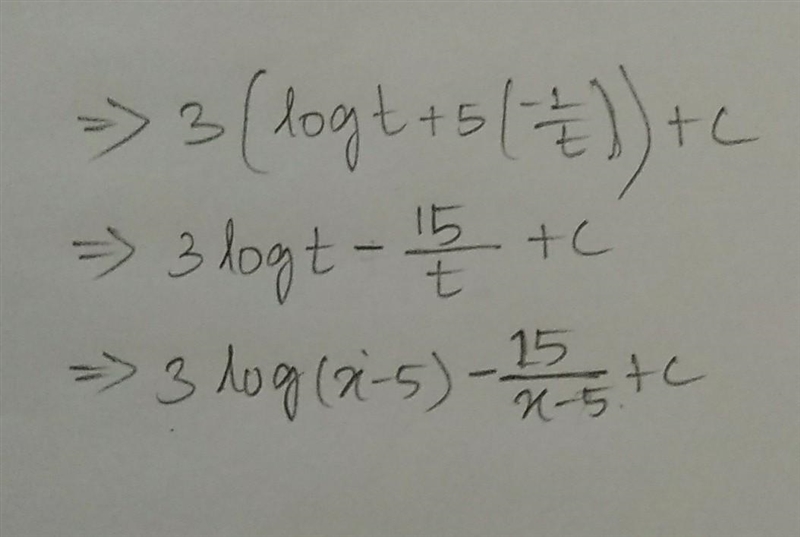 ⇒ 3(log t + 5(-1/t)) + c
⇒ 3 log t - 15/t + c
⇒ 3 log(x-5) - 15/(x-5) + c